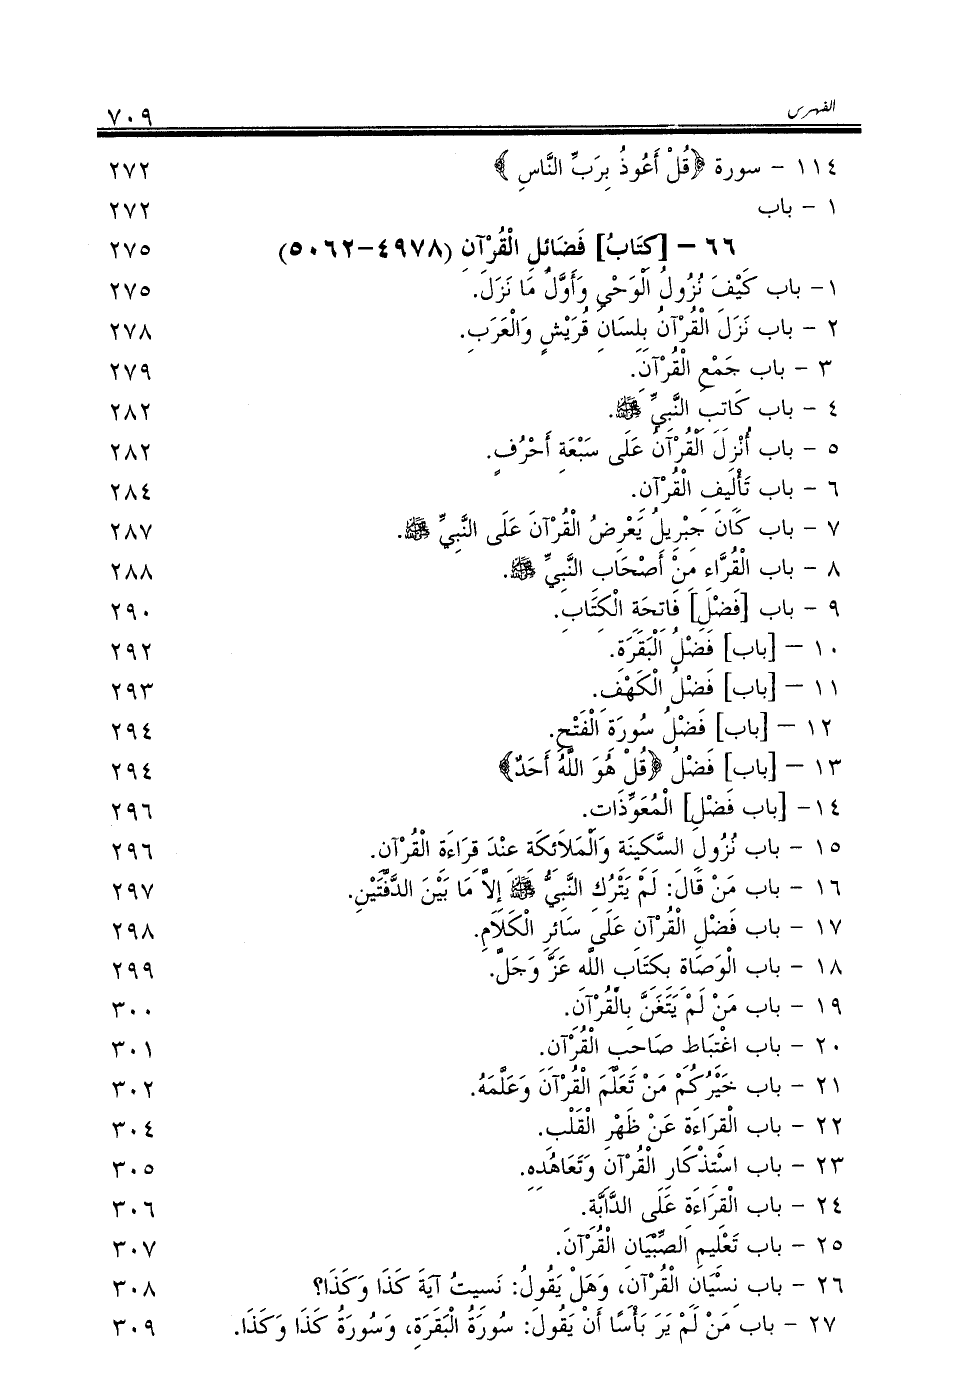 الفهرس ٧٠٩
١١٤ - سورة ﴿قُلْ أَعُوذُ بِرَبِّ النَّاسِ﴾ ٢٧٢
١ - باب ٢٧٢
٦٦ - [كِتَابُ] فَضَائِلِ الْقُرْآنِ (٤٩٧٨-٥٠٦٢) ٢٧٥
١- باب كَيْفَ نُزُولُ الْوَحْيِ وَأَوَّلُ مَا نَزَلَ. ٢٧٥
٢ - باب نَزَلَ الْقُرْآنُ بِلِسَانِ قُرَيْشٍ وَالْعَرَبِ. ٢٧٨
٣ - باب جَمْعِ الْقُرْآنِ. ٢٧٩
٤ - باب كَاتِبِ النَّبِيِّ ﷺ. ٢٨٢
٥ - باب أُنْزِلَ الْقُرْآنُ عَلَى سَبْعَةِ أَحْرُفٍ. ٢٨٢
٦ - باب تَأْلِيفِ الْقُرْآنِ. ٢٨٤
٧ - باب كَانَ جِبْرِيلُ يَعْرِضُ الْقُرْآنَ عَلَى النَّبِيِّ ﷺ. ٢٨٧
٨ - باب الْقُرَّاءِ مِنْ أَصْحَابِ النَّبِيِّ ﷺ. ٢٨٨
٩ - باب [فَضْلِ] فَاتِحَةِ الْكِتَابِ. ٢٩٠
١٠ - [باب] فَضْلُ الْبَقَرَةِ. ٢٩٢
١١ - [باب] فَضْلُ الْكَهْفِ. ٢٩٣
١٢ - [باب] فَضْلُ سُورَةِ الْفَتْحِ. ٢٩٤
١٣ - [باب] فَضْلُ ﴿قُلْ هُوَ اللَّهُ أَحَدٌ﴾ ٢٩٤
١٤- [باب فَضْلِ] الْمُعَوِّذَاتِ. ٢٩٦
١٥ - باب نُزُولِ السَّكِينَةِ وَالْمَلَائِكَةِ عِنْدَ قِرَاءَةِ الْقُرْآنِ. ٢٩٦
١٦ - باب مَنْ قَالَ: لَمْ يَتْرُكِ النَّبِيُّ ﷺ إِلاَّ مَا بَيْنَ الدَّفَّتَيْنِ. ٢٩٧
١٧ - باب فَضْلِ الْقُرْآنِ عَلَى سَائِرِ الْكَلَامِ. ٢٩٨
١٨ - باب الْوَصَاةِ بِكِتَابِ اللَّهِ عَزَّ وَجَلَّ. ٢٩٩
١٩ - باب مَنْ لَمْ يَتَغَنَّ بِالْقُرْآنِ. ٣٠٠
٢٠ - باب اغْتِبَاطِ صَاحِبِ الْقُرْآنِ. ٣٠١
٢١ - باب خَيْرُكُمْ مَنْ تَعَلَّمَ الْقُرْآنَ وَعَلَّمَهُ. ٣٠٢
٢٢ - باب الْقِرَاءَةِ عَنْ ظَهْرِ الْقَلْبِ. ٣٠٤
٢٣ - باب اسْتِذْكَارِ الْقُرْآنِ وَتَعَاهُدِهِ. ٣٠٥
٢٤ - باب الْقِرَاءَةِ عَلَى الدَّابَّةِ. ٣٠٦
٢٥ - باب تَعْلِيمِ الصِّبْيَانِ الْقُرْآنَ. ٣٠٧
٢٦ - باب نِسْيَانِ الْقُرْآنِ، وَهَلْ يَقُولُ: نَسِيتُ آيَةَ كَذَا وَكَذَا؟ ٣٠٨
٢٧ - باب مَنْ لَمْ يَرَ بَأْسًا أَنْ يَقُولَ: سُورَةُ الْبَقَرَةِ، وَسُورَةُ كَذَا وَكَذَا. ٣٠٩